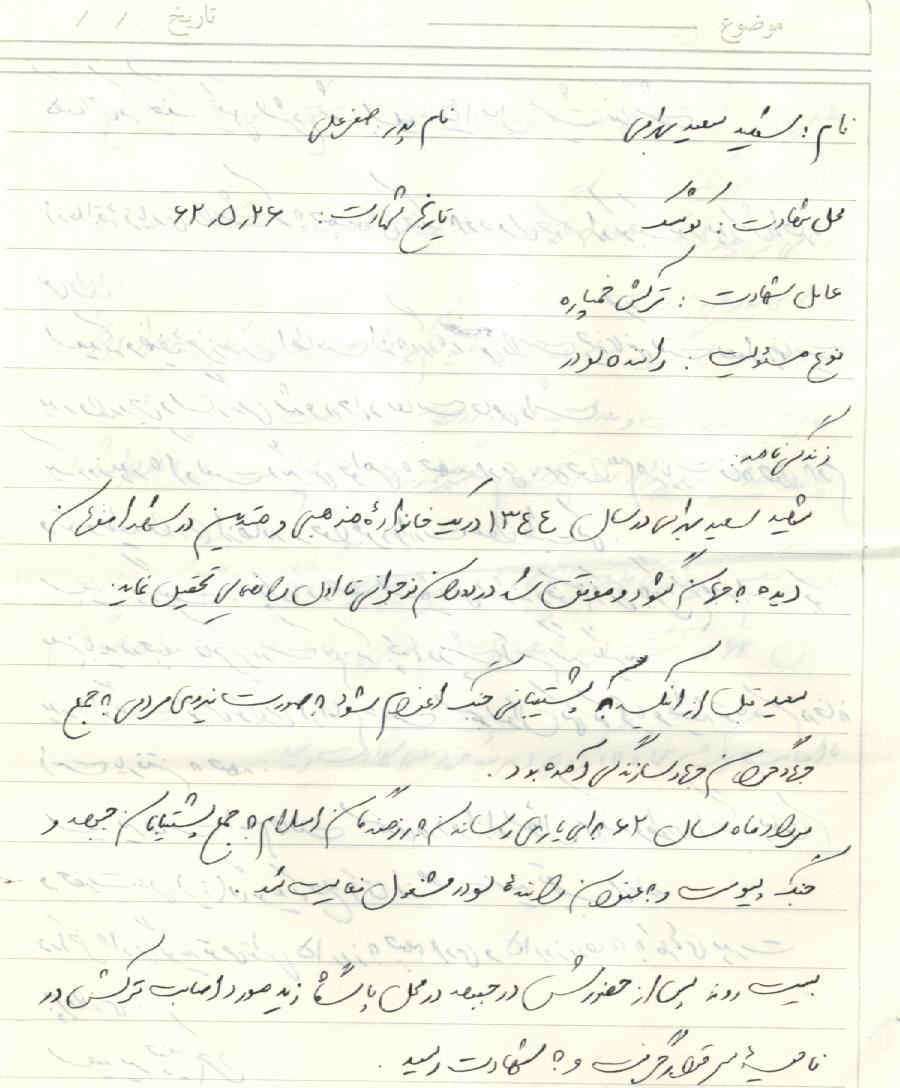 موضوع تاریخ / /
نام : شهید سعید بهرامی نام پدر : صفرعلی
محل شهادت : کوشک تاریخ شهادت : ۶۲،۵،۲۶
عامل شهادت : ترکش خمپاره
نوع مسئولیت : راننده لودر
زندگی نامه :
شهید سعید بهرامی در سال ۱۳٤٤ در یک خانوادهٔ مذهبی و متدین در شهر اصفهان
دیده به جهان گشود و موفق شد در دوران نوجوانی تا اول راهنمایی تحصیل نماید.
سعید قبل از اینکه به پشتیبانی جنگ اعزام شود به صورت نیروی مردمی به جمع
جهادگران جهاد سازندگی آمده بود .
مرداد ماه سال ۶۲ برای یاری رساندن به رزمندگان اسلام به جمع پشتیبانان جبهه و
جنگ پیوست و به عنوان رانندهٔ لودر مشغول فعالیت شد .
بیست روز پس از حضورش در جبهه در محل پاسگاه زید مورد اصابت ترکش در
ناحیهٔ سر قرار گرفت و به شهادت رسید .